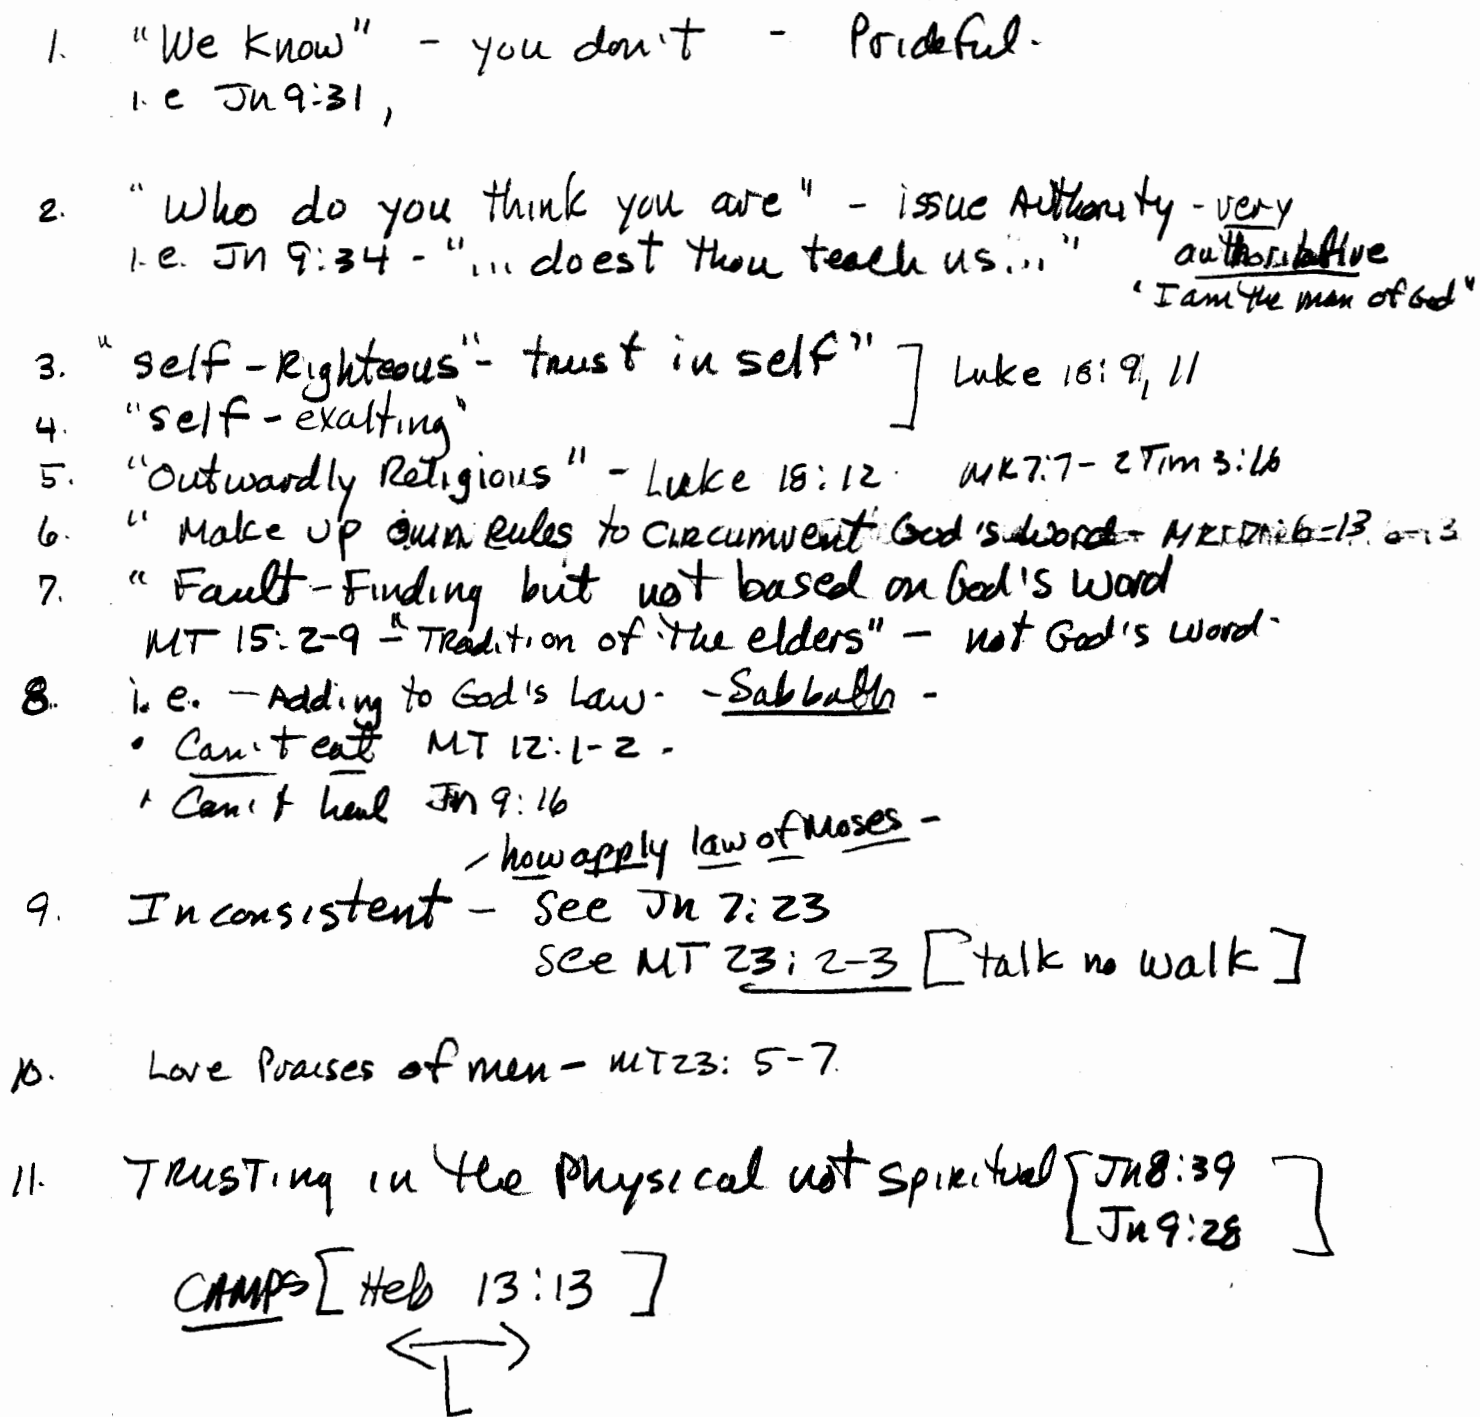 1. "We Know" - you don't - Prideful.
i.e Jn 9:31,
2. "Who do you think you are" - issue Authority - very
i.e. Jn 9:34 - "... doest thou teach us..." authoritative
"I am the man of God"
3. "self-Righteous" - trust in self" ] Luke 18:9, 11
4. "self-exalting"
5. "Outwardly Religious" - Luke 18:12. MK7:7 - 2 Tim 3:16
6. "Make up own Rules to Circumvent God's Word -
7. "Fault-Finding but not based on God's Word
MT 15:2-9 - "Tradition of the elders" - not God's word.
8. i.e. - Adding to God's Law. - Sabbath -
• Can't eat MT 12:1-2 -
• Can't heal Jn 9:16
- how apply law of Moses -
9. Inconsistent - See Jn 7:23
see MT 23:2-3 [talk no walk]
10. Love Praises of men - MT23: 5-7.
11. Trusting in the Physical not spiritual [Jn8:39
Jn 9:28]
CAMPS [Heb 13:13]